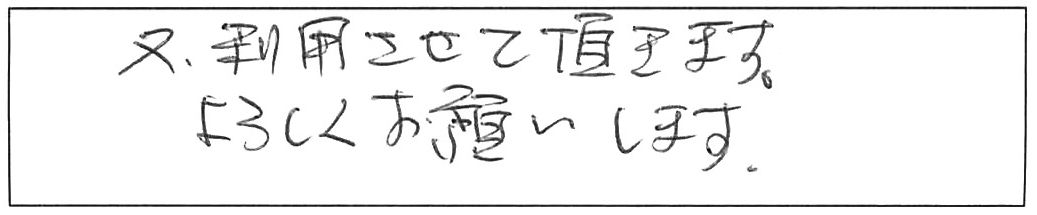 又、利用させて頂きます。
よろしくお願いします.